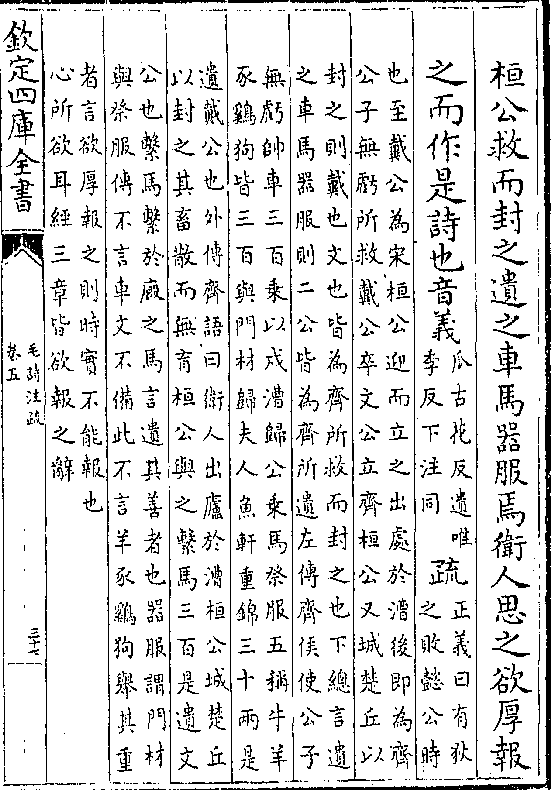 桓公救而封之遺之車馬器服焉衛人思之欲厚報
之而作是詩也音義
瓜古花反遺唯
季反下注同
疏
正義曰有狄
之敗懿公時
也至戴公為宋桓公迎而立之出處於漕後即為齊
公子無虧所救戴公卒文公立齊桓公又城楚丘以
封之則戴也文也皆為齊所救而封之也下總言遺
之車馬器服則二公皆為齊所遺左傳齊侯使公子
無虧帥車三百乘以戍漕歸公乘馬祭服五稱牛羊
豕鷄狗皆三百與門材歸夫人魚軒重錦三十兩是
遺戴公也外傳齊語曰衛人出廬於漕桓公城楚丘
以封之其畜散而無育桓公與之繫馬三百是遺文
公也繫馬繫於廐之馬言遺其善者也器服謂門材
與祭服傳不言車文不備此不言羊豕鷄狗舉其重
者言欲厚報之則時實不能報也
心所欲耳經三章皆欲報之辭
欽定四庫全書
毛詩注疏
卷五
三十七